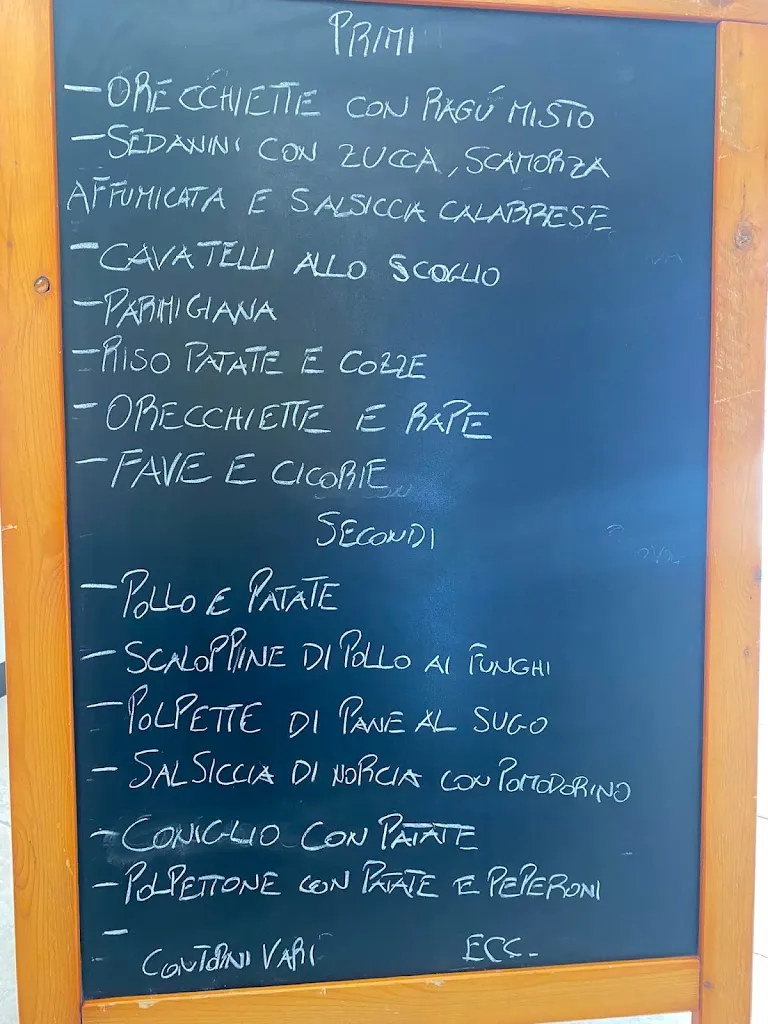 PRIMI
- ORECCHIETTE CON RAGÚ MISTO
- SEDANINI CON ZUCCA, SCAMORZA
AFFUMICATA E SALSICCIA CALABRESE
- CAVATELLI ALLO SCOGLIO
- PARMIGIANA
- RISO PATATE E COZZE
- ORECCHIETTE E RAPE
- FAVE E CICORIE
SECONDI
- POLLO E PATATE
- SCALOPPINE DI POLLO AI FUNGHI
- POLPETTE DI PANE AL SUGO
- SALSICCIA DI NORCIA CON POMODORINO
- CONIGLIO CON PATATE
- POLPETTONE CON PATATE E PEPERONI
-
CONTORNI VARI ECC.